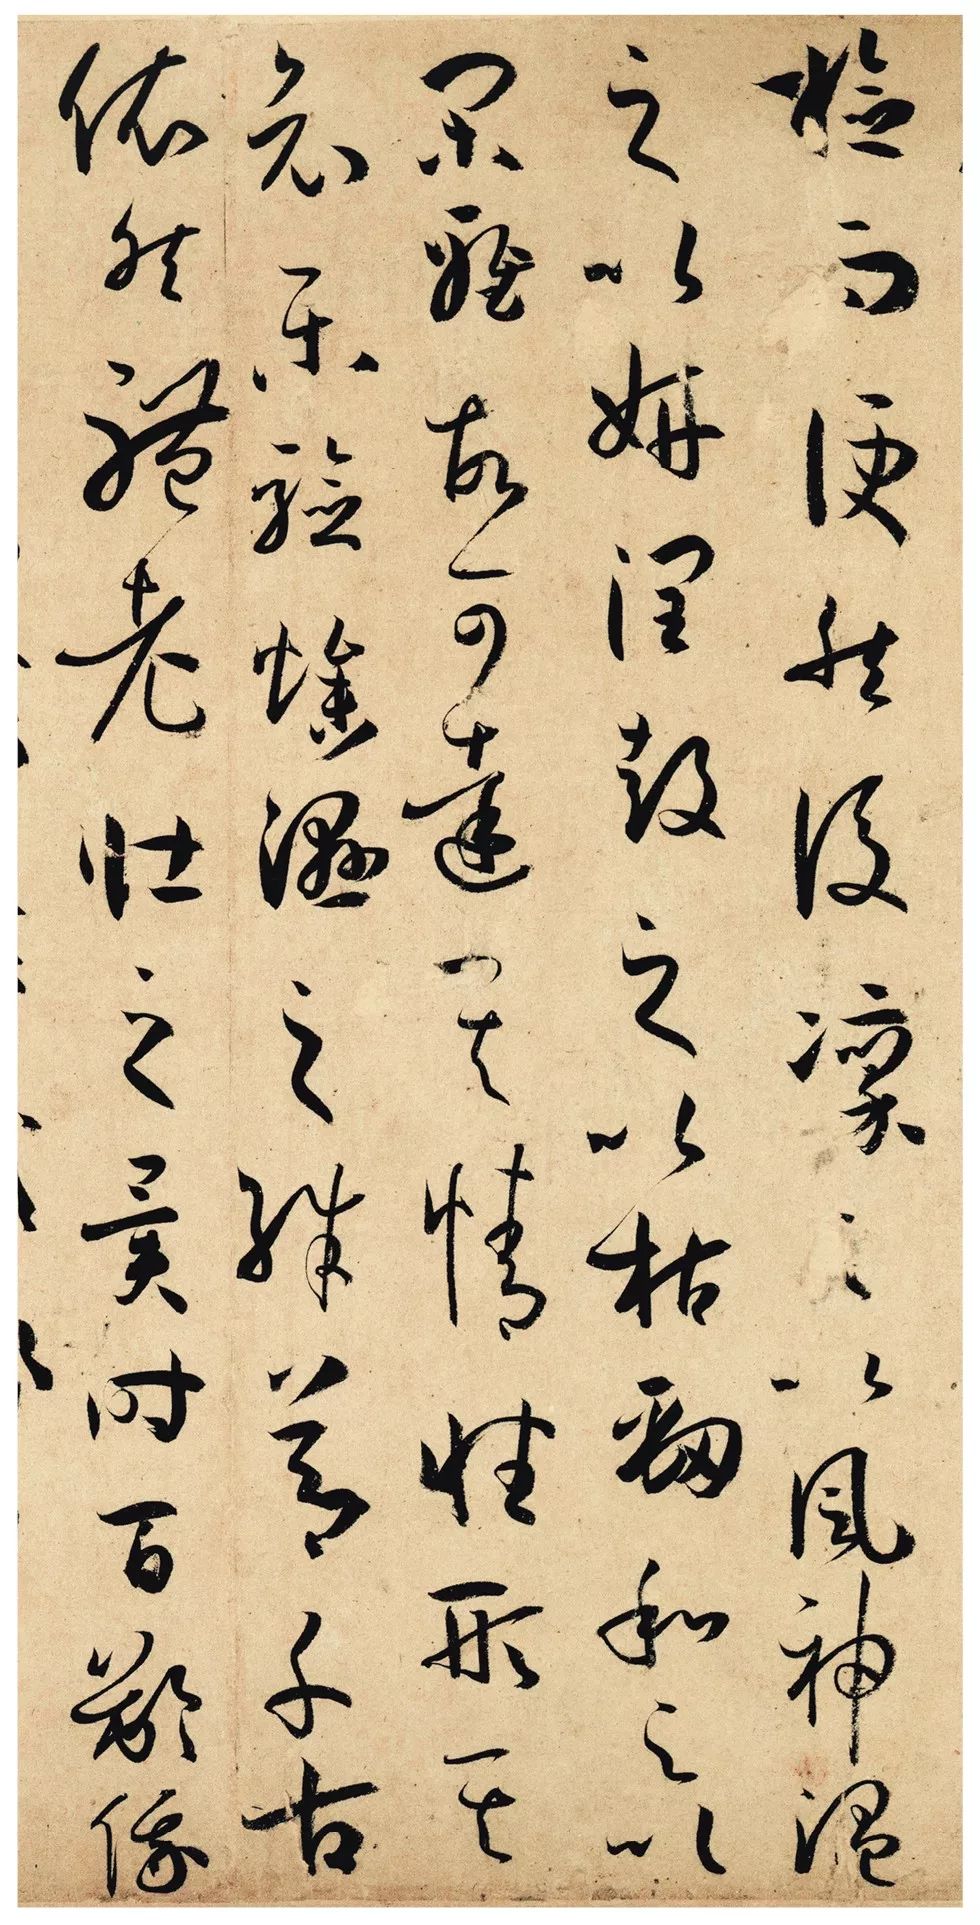 檢而便然後凜之以風神溫
之以妍潤鼓之以枯勁和之以
閑雅故可達其情性形其
哀樂驗燥濕之殊節千古
依然體老壯之異時百齡俄